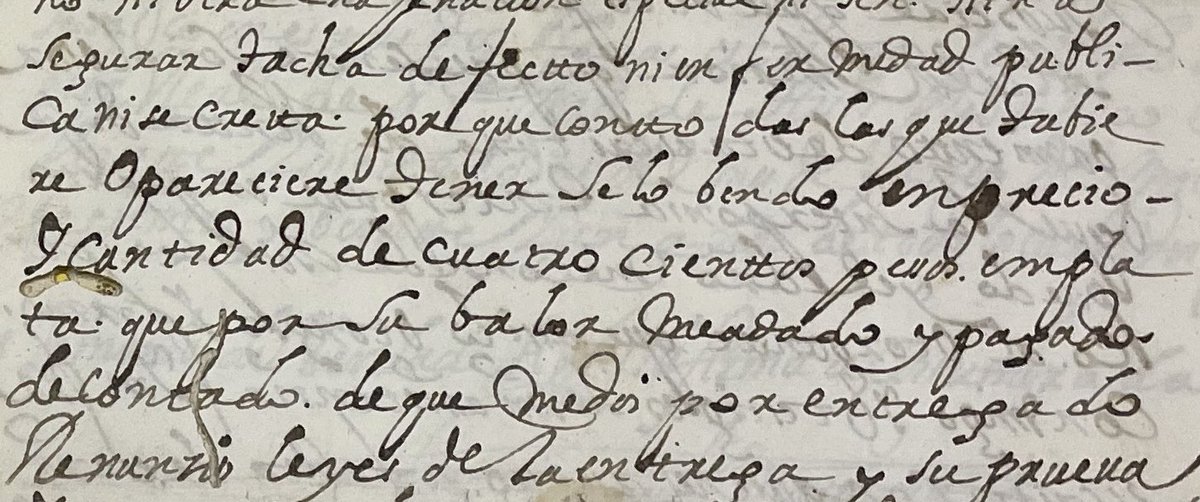 segurar tacha defectto ni enfermedad publi-
ca ni secretta. por que con ttodas las que tubie
re O pareciere tener se lo bendo en precio-
Y cantidad de cuatro cienttos pesos. em pla
ta. que por su balor me a dado y pagado
de contado. de que me doi por entregado
Renunzio leyes de la entrega y su prueua